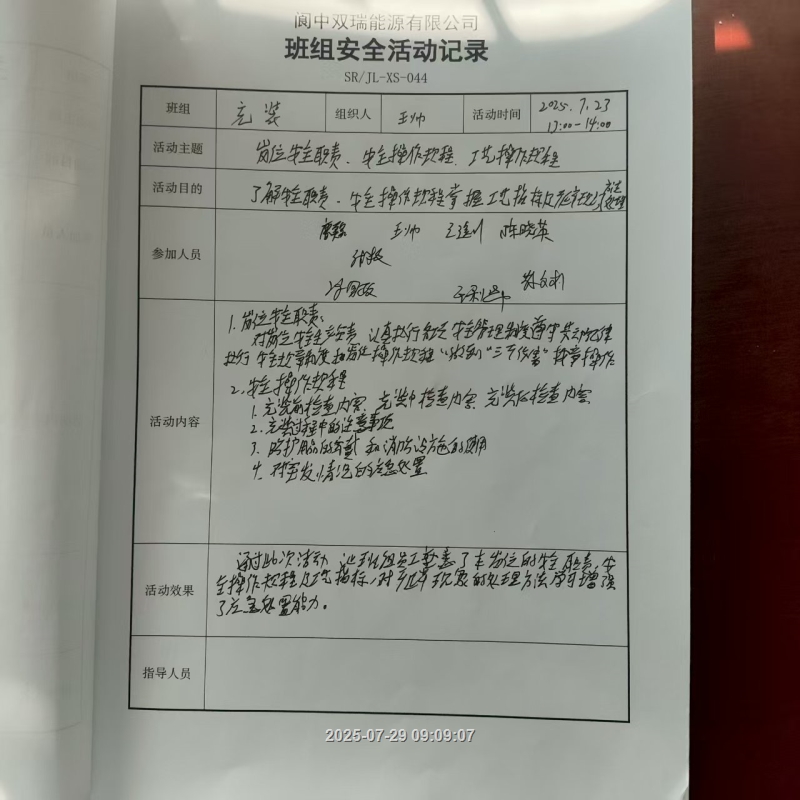 阆中双瑞能源有限公司
班组安全活动记录
SR/JL-XS-044
班组 充装 组织人 王帅 活动时间 2025.7.23
13:00-14:00
活动主题 岗位安全职责、安全操作规程、工艺操作规程
活动目的 了解安全职责、安全操作规程掌握工艺指标及异常现象应急处理
参加人员
王帅 陈晓英
活动内容
1.岗位安全职责:
对岗位安全生产负责,认真执行各项安全管理制度遵守劳动纪律
执行安全规章制度和岗位操作规程 做到"三不伤害"
2.安全操作规程
1.充装前检查内容、充装中检查内容、充装后检查内容
2.充装过程中的注意事项
3.防护用品的穿戴和消防设施的使用
4.对突发情况的应急处置
活动效果
通过此次活动,让班组员工熟悉了本岗位的安全职责,安
全操作规程及工艺指标,对异常现象的处理方法,增强
了应急处置能力。
指导人员
2025-07-29 09:09:07